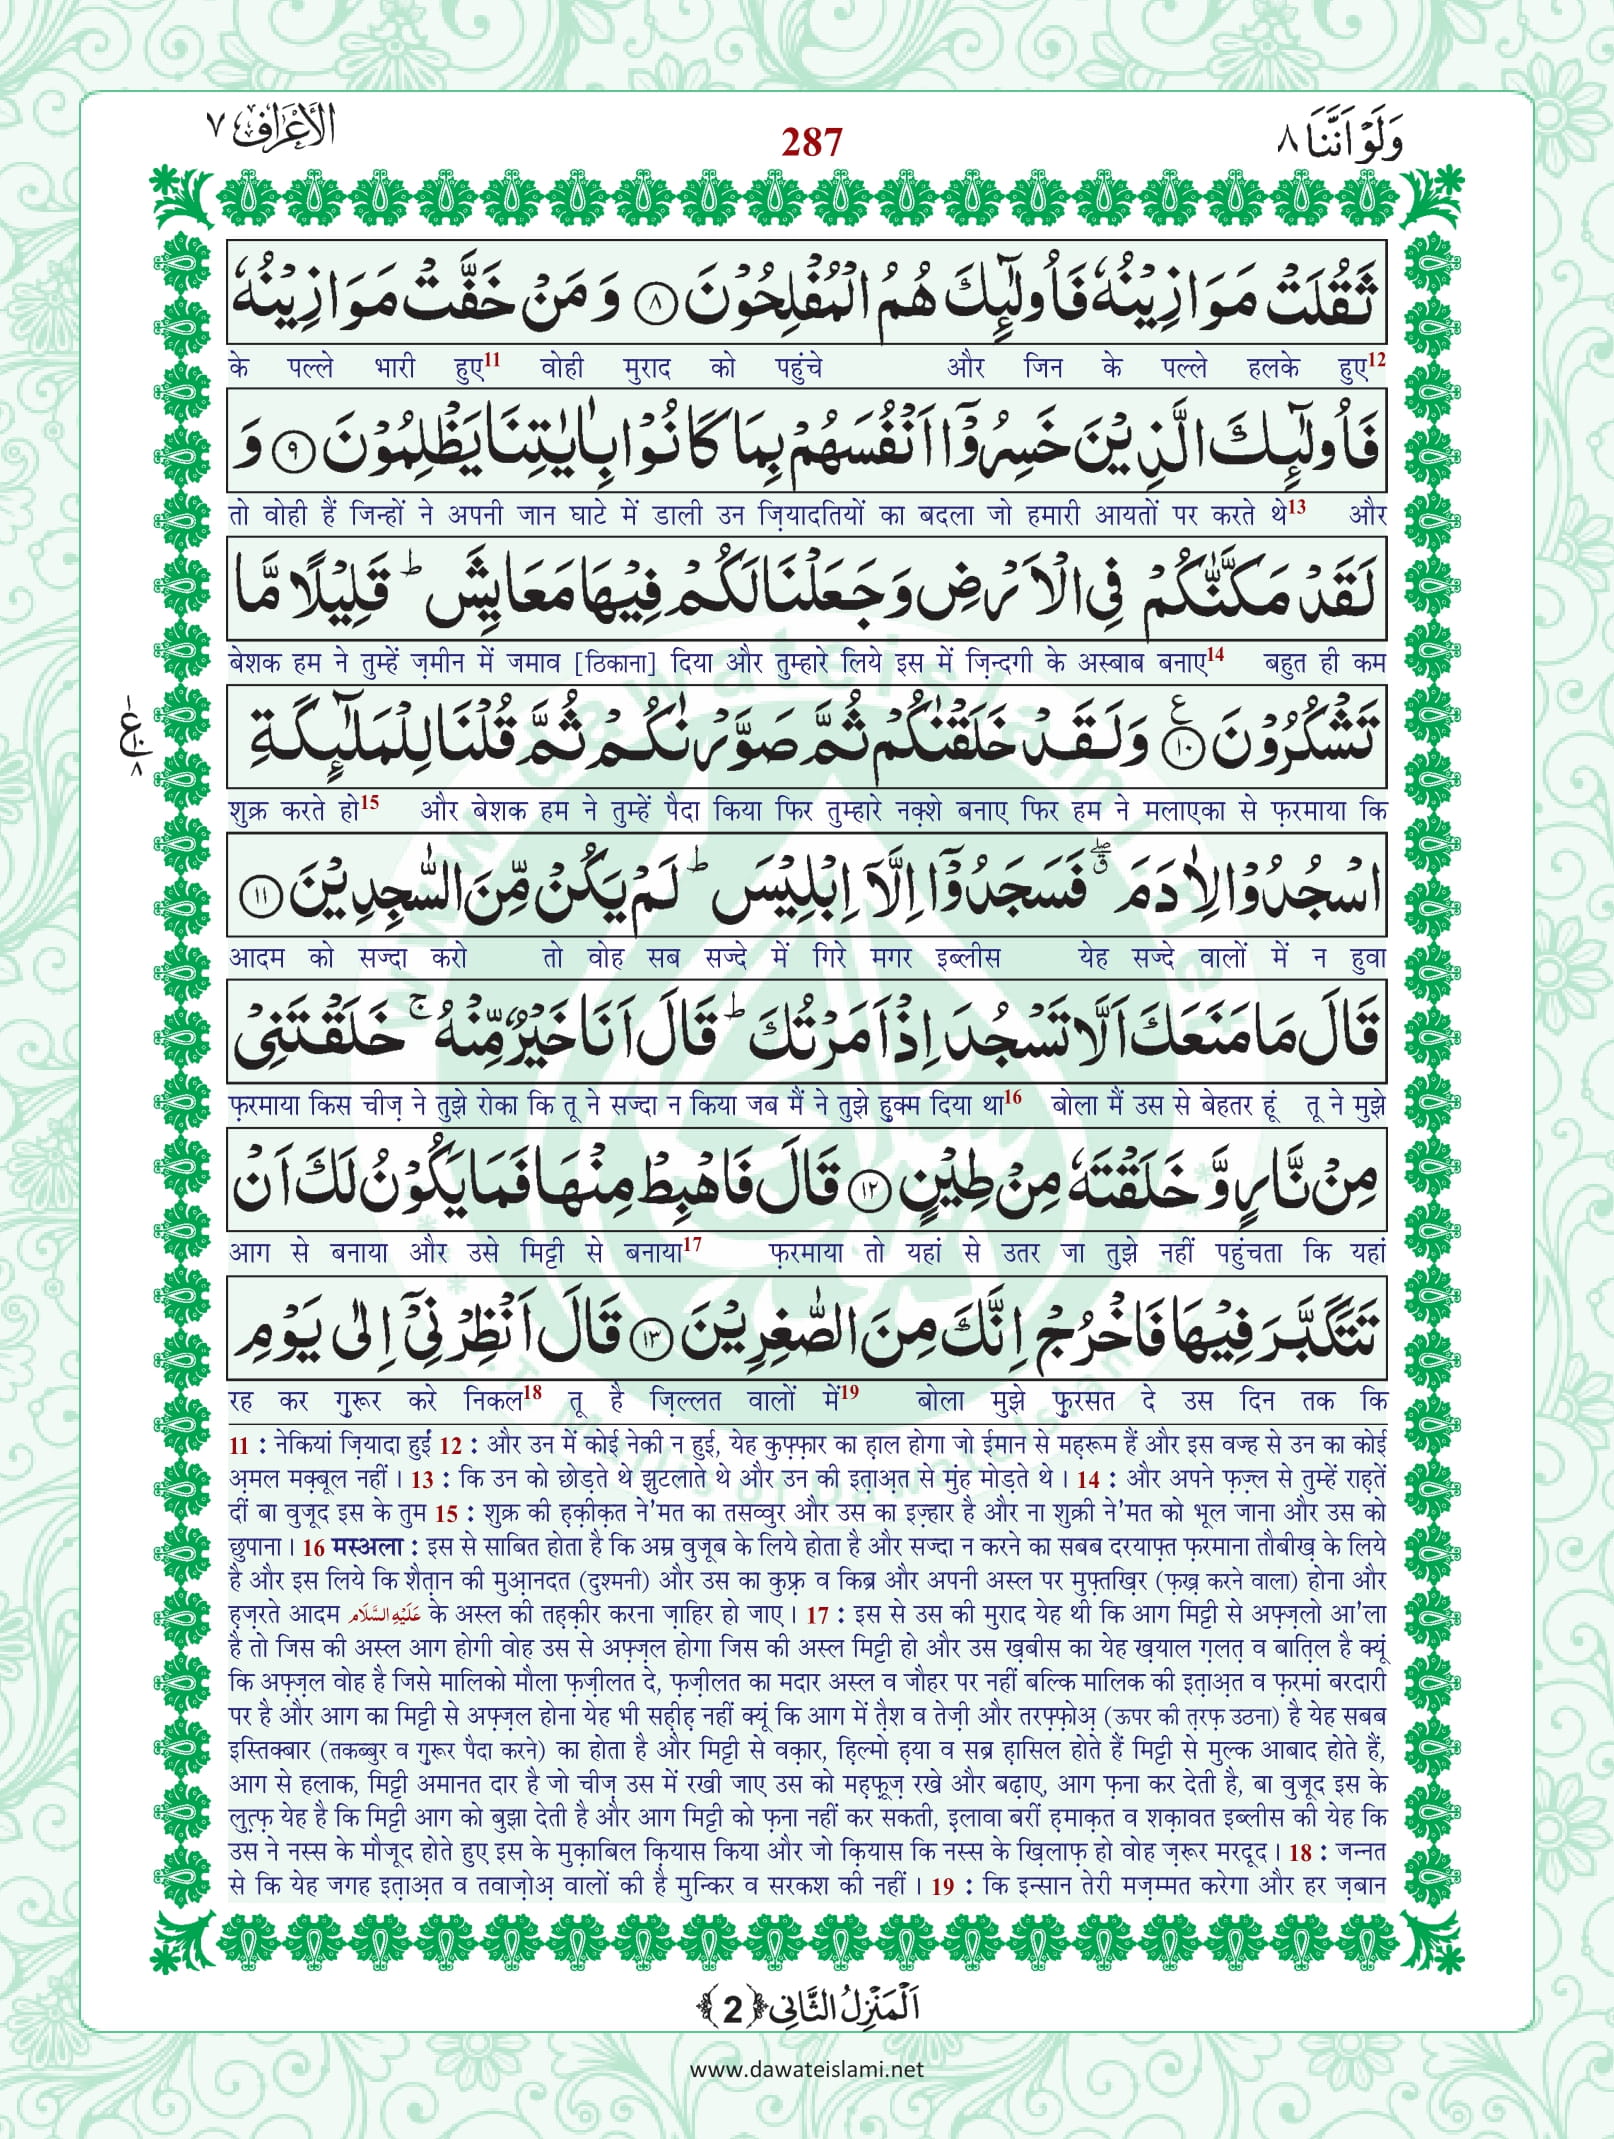 وَلَوْ اَنَّنَا ٨
287
الْاَعْرَاف ٧
ثَقُلَتْ مَوَازِيْنُهٗ فَاُولٰٓىِٕكَ هُمُ الْمُفْلِحُوْنَ ﴿٨﴾ وَ مَنْ خَفَّتْ مَوَازِيْنُهٗ
के पल्ले भारी हुए11 वोही मुराद को पहुंचे और जिन के पल्ले हलके हुए12
فَاُولٰٓىِٕكَ الَّذِيْنَ خَسِرُوْۤا اَنْفُسَهُمْ بِمَا كَانُوْا بِاٰيٰتِنَا يَظْلِمُوْنَ ﴿٩﴾ وَ
तो वोही हैं जिन्हों ने अपनी जान घाटे में डाली उन ज़ियादतियों का बदला जो हमारी आयतों पर करते थे13 और
لَقَدْ مَكَّنّٰكُمْ فِي الْاَرْضِ وَ جَعَلْنَا لَكُمْ فِيْهَا مَعَايِشَ ؕ قَلِيْلًا مَّا
बेशक हम ने तुम्हें ज़मीन में जमाव [ठिकाना] दिया और तुम्हारे लिये इस में ज़िन्दगी के अस्बाब बनाए14 बहुत ही कम
تَشْكُرُوْنَ ﴿١٠﴾ ع وَ لَقَدْ خَلَقْنٰكُمْ ثُمَّ صَوَّرْنٰكُمْ ثُمَّ قُلْنَا لِلْمَلٰٓىِٕكَةِ
शुक्र करते हो15 और बेशक हम ने तुम्हें पैदा किया फिर तुम्हारे नक़्शे बनाए फिर हम ने मलाएका से फ़रमाया कि
اسْجُدُوْا لِاٰدَمَ ۖۗ فَسَجَدُوْۤا اِلَّاۤ اِبْلِيْسَ ؕ لَمْ يَكُنْ مِّنَ السّٰجِدِيْنَ ﴿١١﴾
आदम को सज्दा करो तो वोह सब सज्दे में गिरे मगर इब्लीस येह सज्दे वालों में न हुवा
قَالَ مَا مَنَعَكَ اَلَّا تَسْجُدَ اِذْ اَمَرْتُكَ ؕ قَالَ اَنَا خَيْرٌ مِّنْهُ ۚ خَلَقْتَنِيْ
फ़रमाया किस चीज़ ने तुझे रोका कि तू ने सज्दा न किया जब मैं ने तुझे हुक्म दिया था16 बोला मैं उस से बेहतर हूं तू ने मुझे
مِنْ نَّارٍ وَّ خَلَقْتَهٗ مِنْ طِيْنٍ ﴿١٢﴾ قَالَ فَاهْبِطْ مِنْهَا فَمَا يَكُوْنُ لَكَ اَنْ
आग से बनाया और उसे मिट्टी से बनाया17 फ़रमाया तो यहां से उतर जा तुझे नहीं पहुंचता कि यहां
تَتَكَبَّرَ فِيْهَا فَاخْرُجْ اِنَّكَ مِنَ الصّٰغِرِيْنَ ﴿١٣﴾ قَالَ اَنْظِرْنِيْۤ اِلٰى يَوْمِ
रह कर गुरूर करे निकल18 तू है ज़िल्लत वालों में19 बोला मुझे फुरसत दे उस दिन तक कि
11 : नेकियां ज़ियादा हुई 12 : और उन में कोई नेकी न हुई, येह कुफ़्फ़ार का हाल होगा जो ईमान से मह़रूम हैं और इस वज्ह से उन का कोई
अ़मल मक़्बूल नहीं । 13 : कि उन को छोड़ते थे झुटलाते थे और उन की इत़ाअ़त से मुंह मोड़ते थे । 14 : और अपने फ़ज़्ल से तुम्हें राह़तें
दीं बा वुजूद इस के तुम 15 : शुक्र की ह़क़ीक़त ने'मत का तसव्वुर और उस का इज़्हार है और ना शुक्री ने'मत को भूल जाना और उस को
छुपाना । 16 मस्अला : इस से साबित होता है कि अम्र वुजूब के लिये होता है और सज्दा न करने का सबब दरयाफ़्त फ़रमाना तौबीख़ के लिये
है और इस लिये कि शैत़ान की मुआ़नदत (दुश्मनी) और उस का कुफ़्र व किब्र और अपनी अस्ल पर मुफ़्तख़िर (फ़ख़्र करने वाला) होना और
हज़रते आदम عَلَيْهِ السَّلَام के अस्ल की तह़क़ीर करना ज़ाहिर हो जाए । 17 : इस से उस की मुराद येह थी कि आग मिट्टी से अफ़्ज़लो आ'ला
है तो जिस की अस्ल आग होगी वोह उस से अफ़्ज़ल होगा जिस की अस्ल मिट्टी हो और उस ख़बीस का येह ख़याल ग़लत़ व बात़िल है क्यूं
कि अफ़्ज़ल वोह है जिसे मालिको मौला फ़ज़ीलत दे, फ़ज़ीलत का मदार अस्ल व जौहर पर नहीं बल्कि मालिक की इत़ाअ़त व फ़रमां बरदारी
पर है और आग का मिट्टी से अफ़्ज़ल होना येह भी सह़ीह़ नहीं क्यूं कि आग में त़ैश व तेज़ी और तरफ़्फ़ोअ़ (ऊपर की त़रफ़ उठना) है येह सबब
इस्तिक्बार (तकब्बुर व गुरूर पैदा करने) का होता है और मिट्टी से वक़ार, ह़िल्मो ह़या व सब्र ह़ासिल होते हैं मिट्टी से मुल्क आबाद होते हैं,
आग से हलाक, मिट्टी अमानत दार है जो चीज़ उस में रखी जाए उस को मह़फ़ूज़ रखे और बढ़ाए, आग फ़ना कर देती है, बा वुजूद इस के
लुत़्फ़ येह है कि मिट्टी आग को बुझा देती है और आग मिट्टी को फ़ना नहीं कर सकती, इ़लावा बरीं ह़माक़त व शक़ावत इब्लीस की येह कि
उस ने नस्स के मौजूद होते हुए इस के मुक़ाबिल क़ियास किया और जो क़ियास कि नस्स के ख़िलाफ़ हो वोह ज़रूर मरदूद । 18 : जन्नत
से कि येह जगह इत़ाअ़त व तवाज़ोअ़ वालों की है मुन्किर व सरकश की नहीं । 19 : कि इन्सान तेरी मज़म्मत करेगा और हर ज़बान
اَلْمَنْزِلُ الثَّانِي ﴿2﴾
www.dawateislami.net